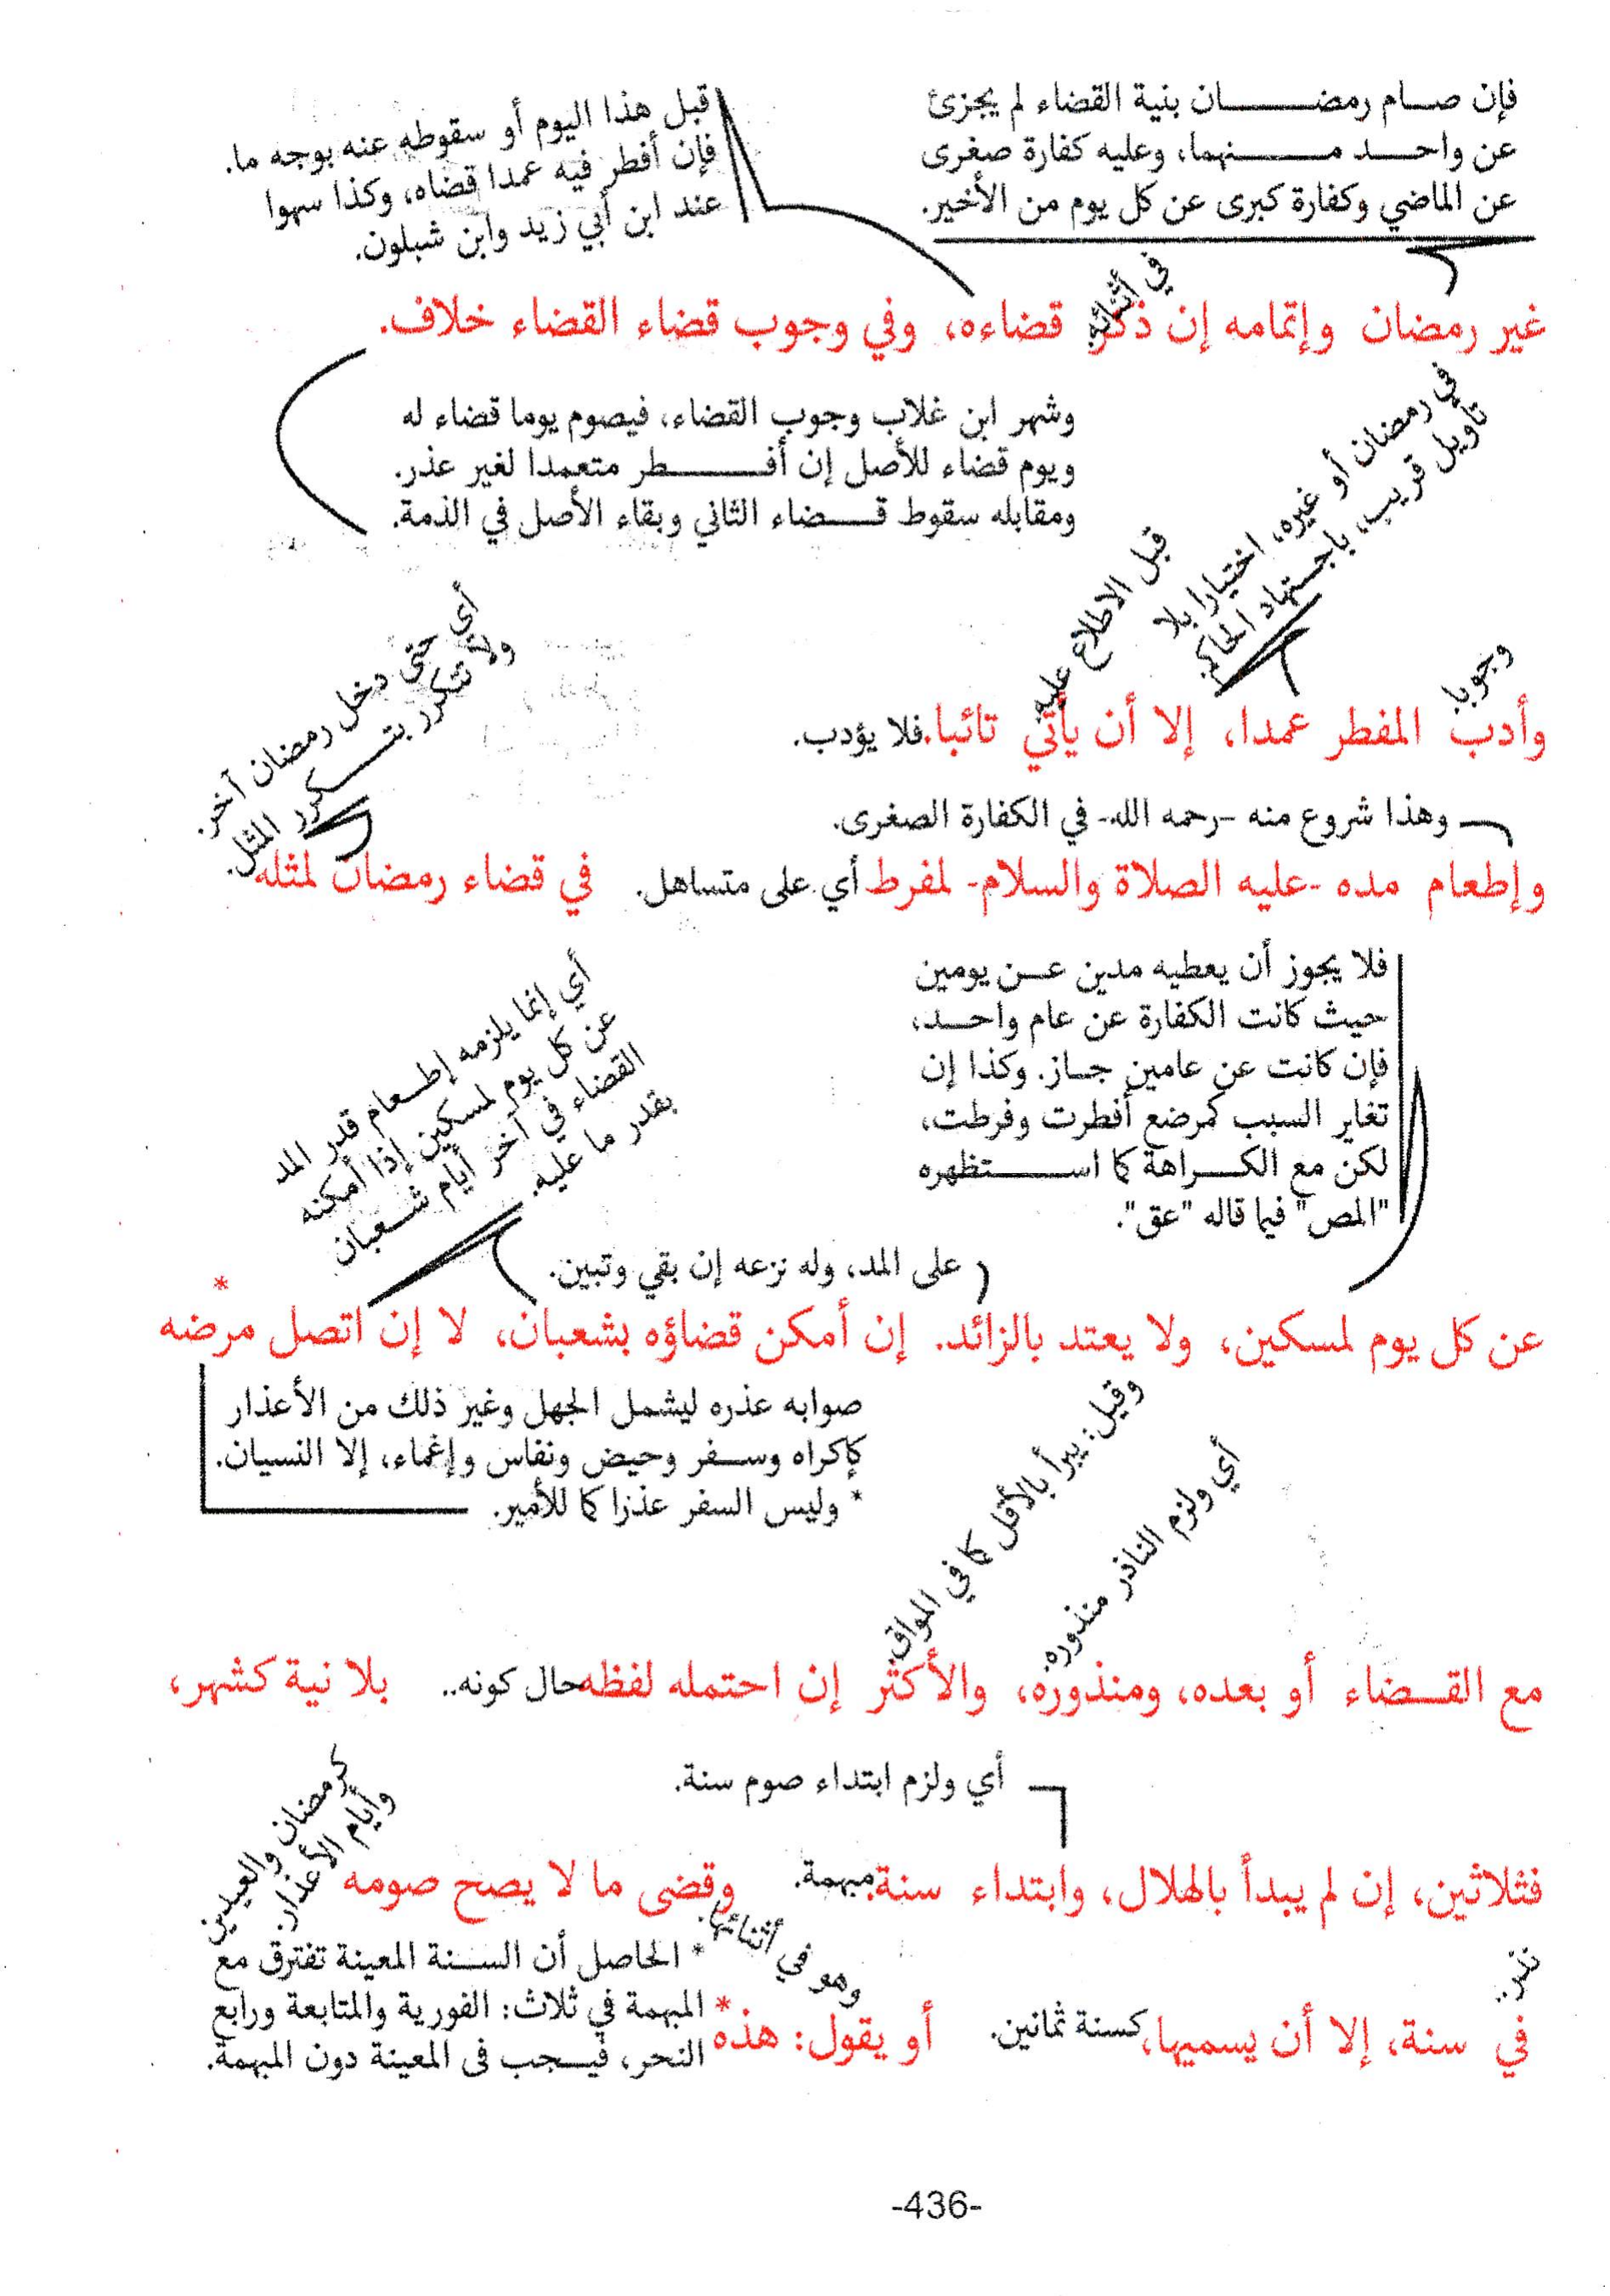 فإن صام رمضان بنية القضاء لم يجزئ
عن واحد منهما، وعليه كفارة صغرى
عن الماضي وكفارة كبرى عن كل يوم من الأخير.
قبل هذا اليوم أو سقوطه عنه بوجه ما.
فإن أفطر فيه عمدا قضاه، وكذا سهوا
عند ابن أبي زيد وابن شبلون.
في أثنائه.
غير رمضان وإتمامه إن ذكر قضاءه، وفي وجوب قضاء القضاء خلاف.
وشهر ابن غلاب وجوب القضاء، فيصوم يوما قضاء له
ويوم قضاء للأصل إن أفطر متعمدا لغير عذر.
ومقابله سقوط قضاء الثاني وبقاء الأصل في الذمة.
وجوبا.
في رمضان أو غيره، اختيارا بلا
تأويل قريب، باجتهاد الحاكم.
قبل الاطلاع عليه.
وأدب المفطر عمدا، إلا أن يأتي تائبا. فلا يؤدب.
وهذا شروع منه -رحمه الله- في الكفارة الصغرى.
أي حتى دخل رمضان آخر.
ولا تتكرر بتكرر المثل.
وإطعام مده -عليه الصلاة والسلام- لمفرط أي على متساهل. في قضاء رمضان لمثله
فلا يجوز أن يعطيه مدين عن يومين
حيث كانت الكفارة عن عام واحد،
فإن كانت عن عامين جاز. وكذا إن
تغاير السبب كمرضع أفطرت وفرطت،
لكن مع الكراهة كما استظهره
"المص" فيما قاله "عق".
أي إنما يلزمه إطعام قدر المد
عن كل يوم لمسكين إذا أمكنه
القضاء في آخر أيام شعبان
بقدر ما عليه.
على المد، وله نزعه إن بقي وتبين.
عن كل يوم لمسكين، ولا يعتد بالزائد. إن أمكن قضاؤه بشعبان، لا إن اتصل مرضه *
صوابه عذره ليشمل الجهل وغير ذلك من الأعذار
كإكراه وسفر وحيض ونفاس وإغماء، إلا النسيان.
* وليس السفر عذرا كما للأمير.
أي ولزم الناذر منذوره.
وقيل: يبرأ بالأقل كما في المواق.
مع القضاء أو بعده، ومنذوره، والأكثر إن احتمله لفظه حال كونه.. بلا نية كشهر،
أي ولزم ابتداء صوم سنة.
كرمضان والعيدين
وأيام الأعذار.
فثلاثين، إن لم يبدأ بالهلال، وابتداء سنة. مبهمة. وقضى ما لا يصح صومه
وهو في أثنائها.
في سنة، إلا أن يسميها، كسنة ثمانين. أو يقول: هذه *
* الحاصل أن السنة المعينة تفترق مع
المبهمة في ثلاث: الفورية والمتابعة ورابع
النحر، فيجب فى المعينة دون المبهمة.
-436-